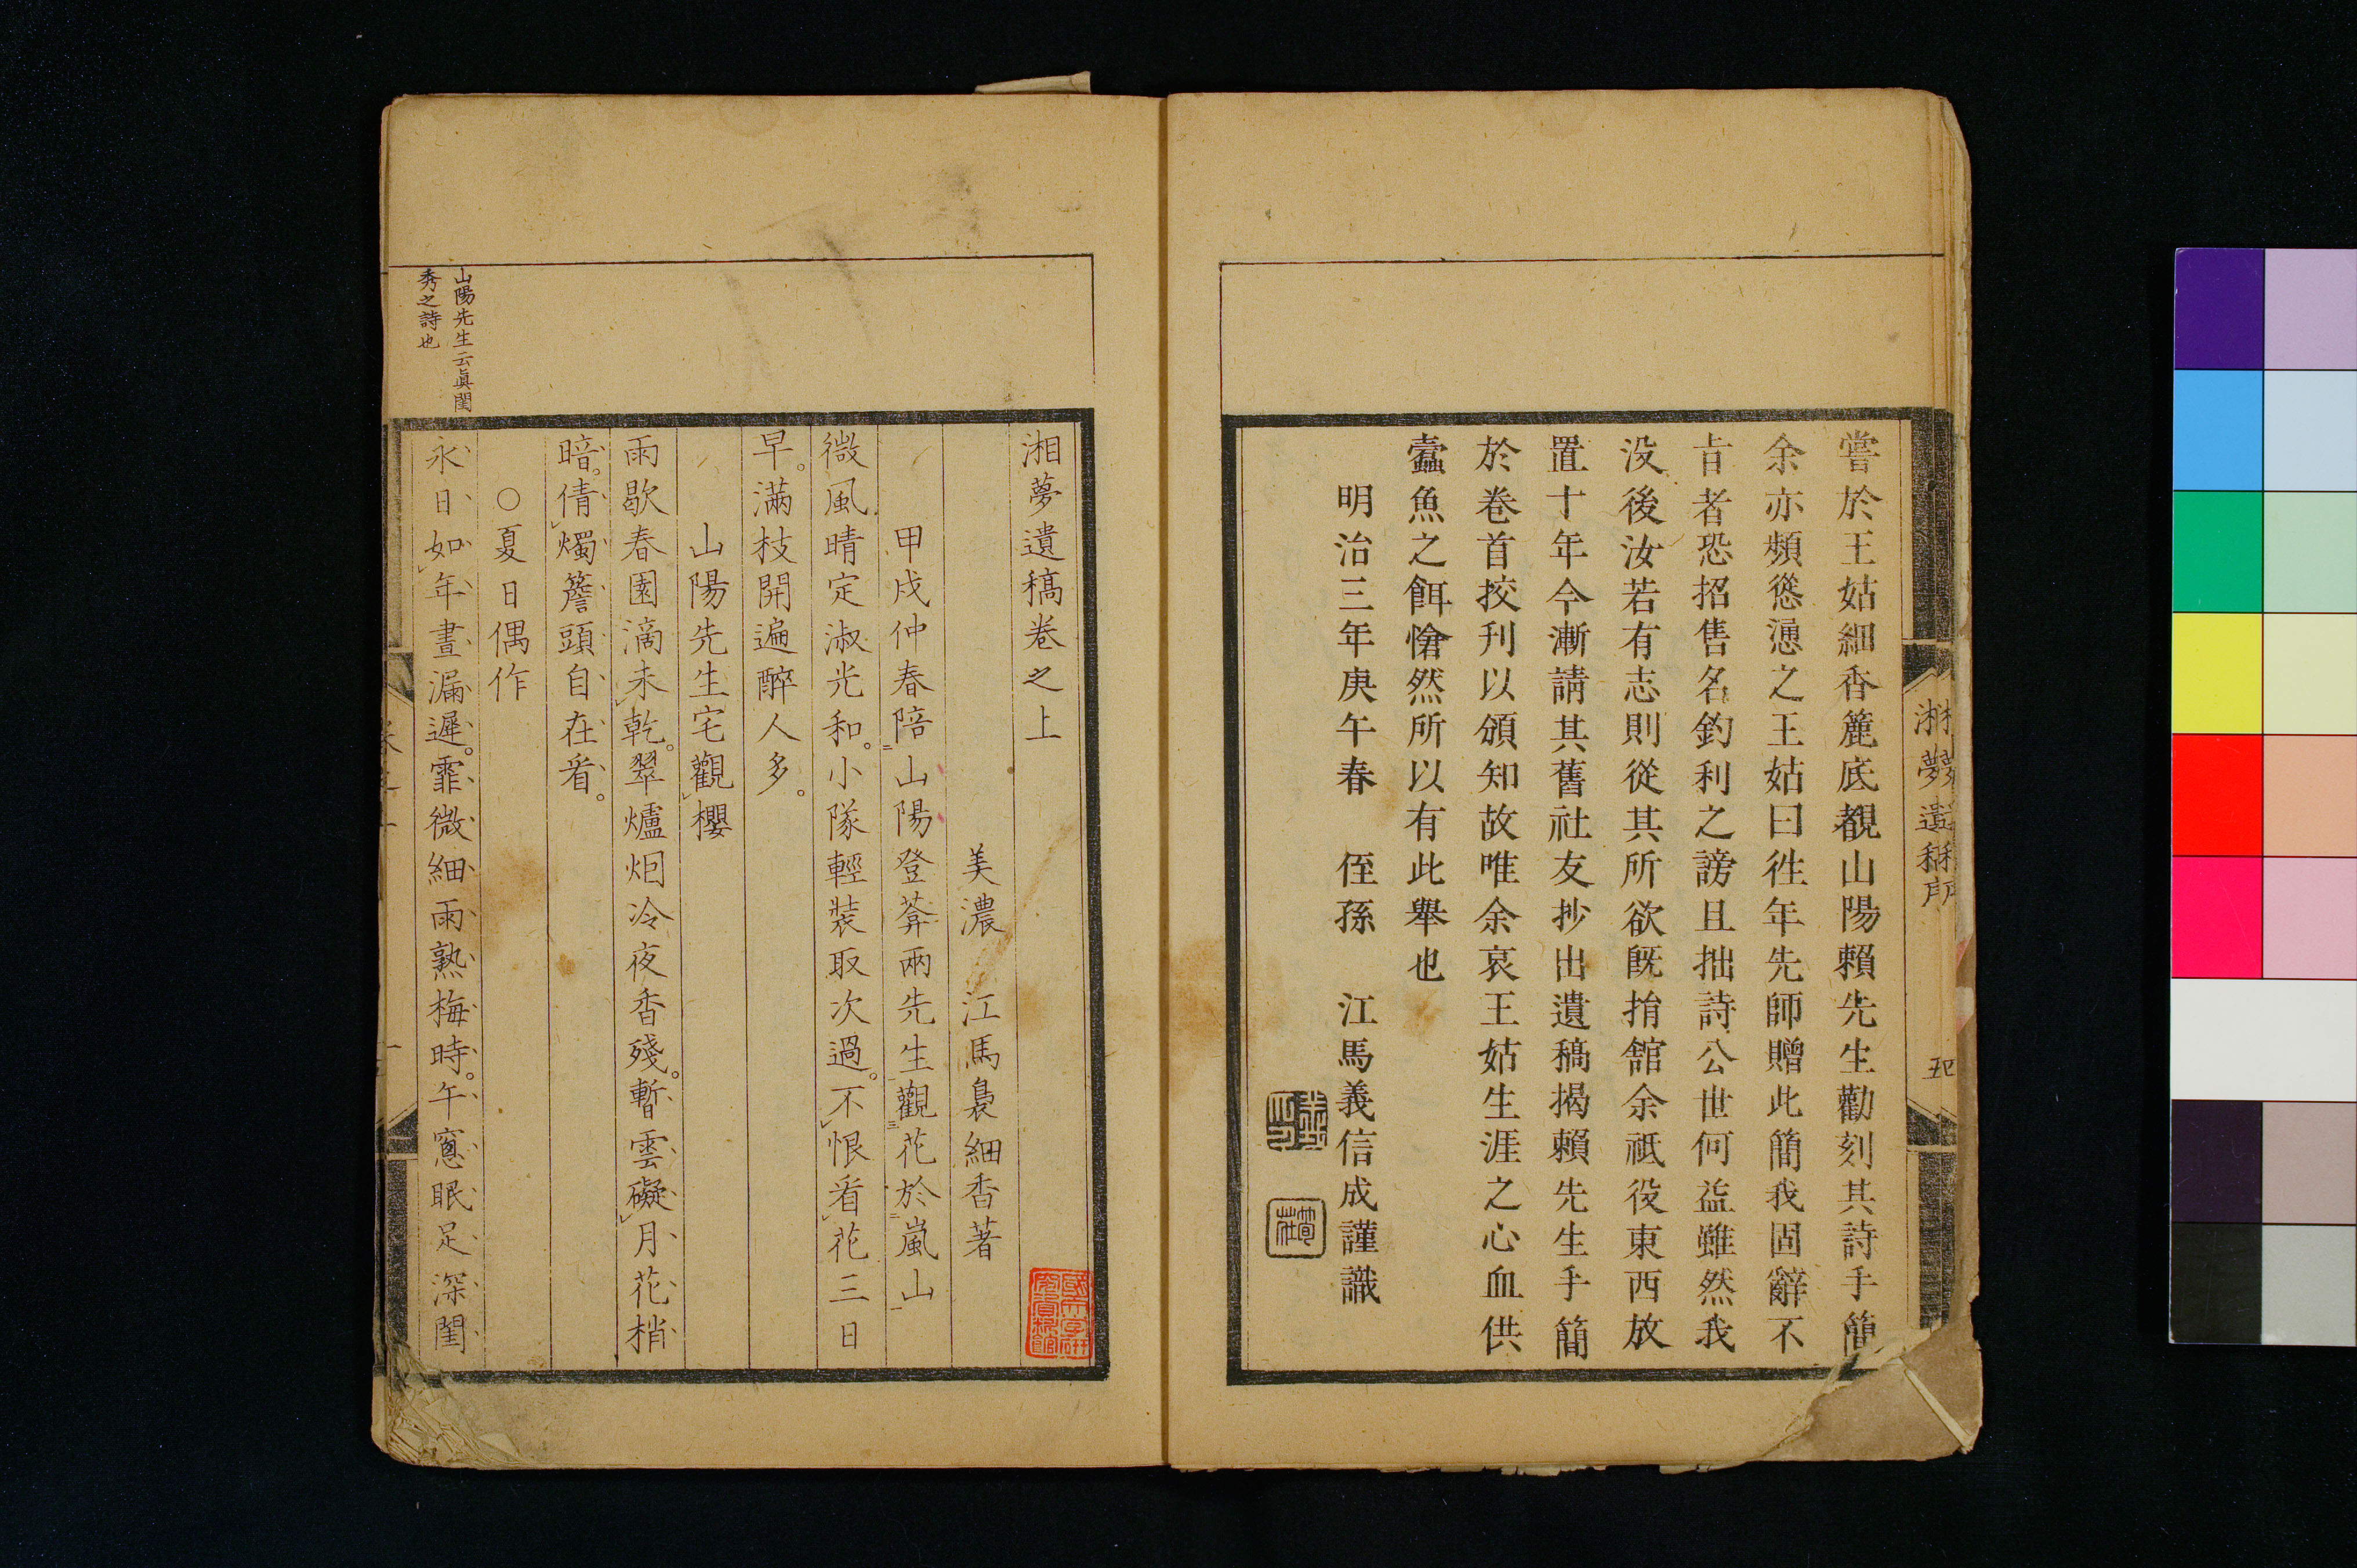 嘗於王姑細香簏底覩山陽賴先生勸刻其詩手簡
余亦頻慫慂之王姑曰徃年先師贈此簡我固辭不
㫖者恐招售名釣利之謗且拙詩公世何益雖然我
没後汝若有志則從其所欲旣捐舘余祗役東西放
置十年今漸請其舊社友抄出遺稿揭賴先生手簡
於卷首挍刊以頒知故唯余哀王姑生涯之心血供
蠹魚之餌愴然所以有此舉也
明治三年庚午春　侄孫　江馬義信成謹識
湘夢遺稿
五
湘夢遺稿卷之上
美濃　江馬裊細香著
甲戌仲春陪山陽登葊兩先生觀花於嵐山
微風晴定淑光和。小隊輕裝取次過。不恨看花三日
早。滿枝開遍醉人多。
山陽先生宅觀櫻
雨歇春園滴未乾。翠爐烟冷夜香殘。暫雲礙月花梢
暗。倩燭簷頭自在看。
○夏日偶作
永日如年晝漏遲。霏微細雨熟梅時。午窻眠足深閨
山陽先生云眞閨
秀之詩也